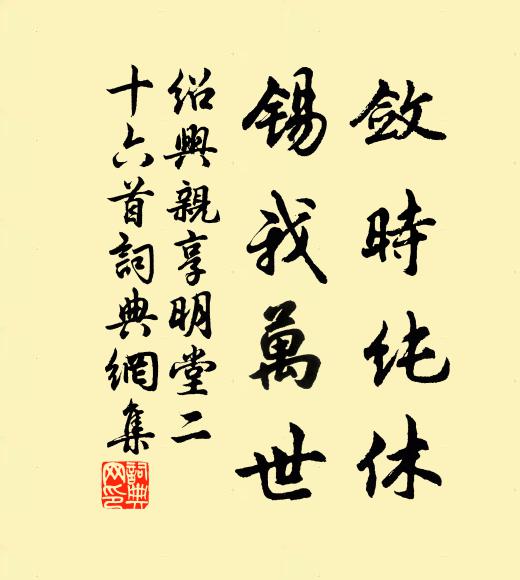 斂時純休
錫我萬世
紹興親享明堂二
十六首詞典網集
詞典網印